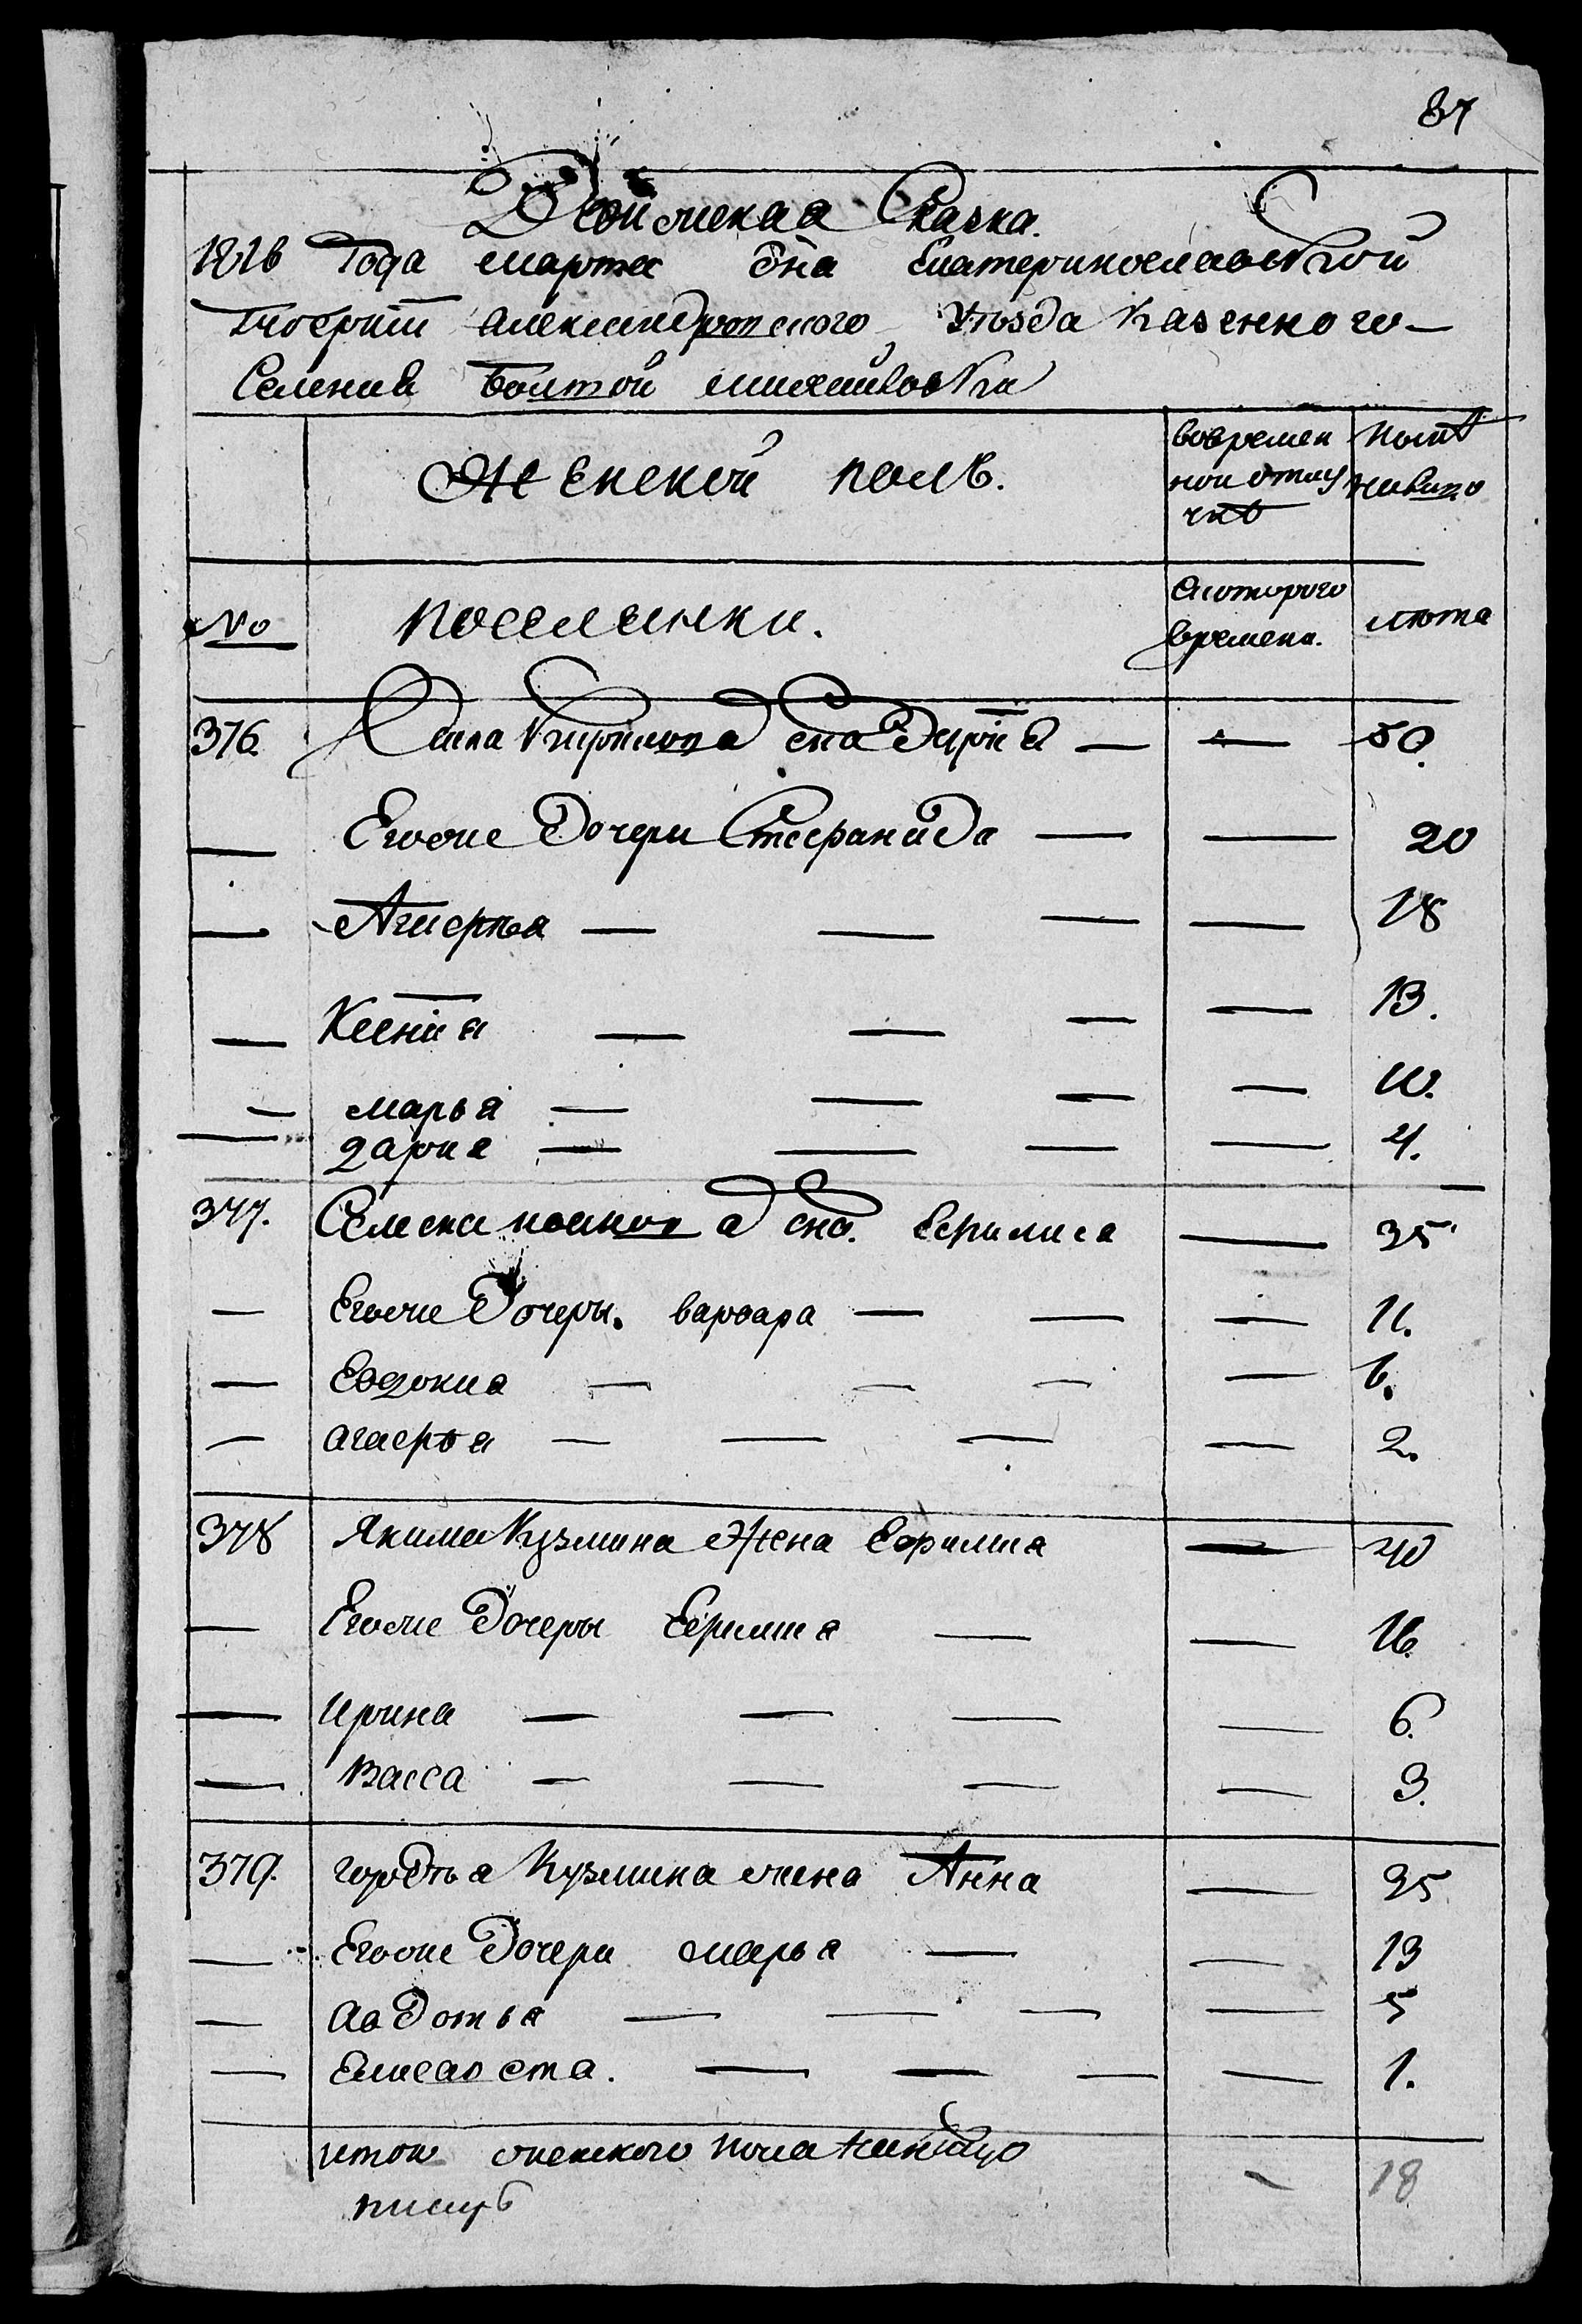 87
Ревижская Сказка.
1816 года марта дня Екатеринославской
Губерніи Александровского уезда казенного
Селения Болшой Михайловки
Женской полъ.
вовремен
ной отлу
чкѣ
ныне
налицо
№
поселянки.
с которого
времени.
лета
376 Кирилова жена Дария — — 50.
— Егоже дочери Стефанида — — 20
— Агафья — — — — 18
— Ксения — — — — 13.
— марья — — — — 10.
— дария — — — — 4.
377. Семена жена Ефимия — 35
— Егоже дочеры. варвара — — — 11.
— Евдокиа — — — — 6.
— агафья — — — — 2.
378 Якима Кузмина жена Ефимиа — 40
— Егоже дочеры Ефимиа — — 16
— Ирина — — — — 6.
— Васса — — — — 3.
379. гордея Кузмина жена Анна — 35
— Егоже дочери марья — — 13
— авдотья — — — — 5
— Елисавета. — — — — 1.
итого женского пола наличцо — 18